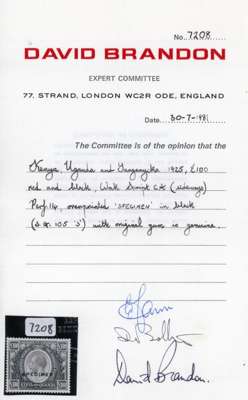 No. 7208
DAVID BRANDON
EXPERT COMMITTEE
77, STRAND, LONDON WC2R ODE, ENGLAND
Date 30-7-1981
The Committee Is of the opinion that the
Kenya Uganda and Tanganyika 1925, £100
red and black, Wmk Script CA (sideways)
Perf 14, overprinted 'SPECIMEN' in black
(S.G. 105 's') with original gum is genuine.
David Brandon.
7208
SPECIMEN